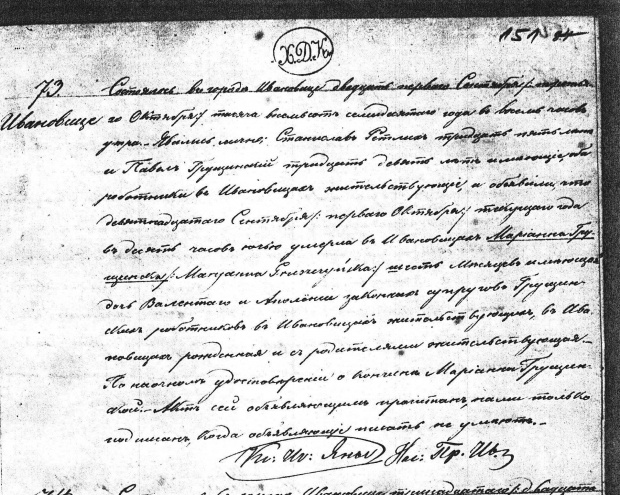 Х.Д.К.
151
73. Состоялось въ городѣ Ивановице двадцать перваго Сентября/: 
Ивановице го Октября:/ тысяча восемьсотъ семидесятаго года въ восемь часовъ
утра. Явились лично: Станиславъ тридцать пять лѣтъ
и Павелъ Грущинский тридцать девять лѣтъ имѣющіе, оба
работники въ Ивановицахъ жительствующіе, и объявили, что
девятнадцатаго Сентября/: перваго Октября:/ текущаго года
въ десять часовъ ночью умерла въ Ивановицахъ Маріанна Гру-
щинска/: Маryanna :/ шесть мѣсяцевъ имѣющая
дочь Валентаго и Аполоніи законныхъ супруговъ Грущин-
скихъ работниковъ въ Ивановицахъ жительствующихъ, въ Ива-
новицахъ рожденная и съ родителями жительствующая.
По наочномъ удостовѣреніи о кончинѣ Маріанны Грущин-
ской. Актъ сей объявляющимъ прочитанъ, нами только
подписанъ, когда объявляющіе писать не умѣютъ.